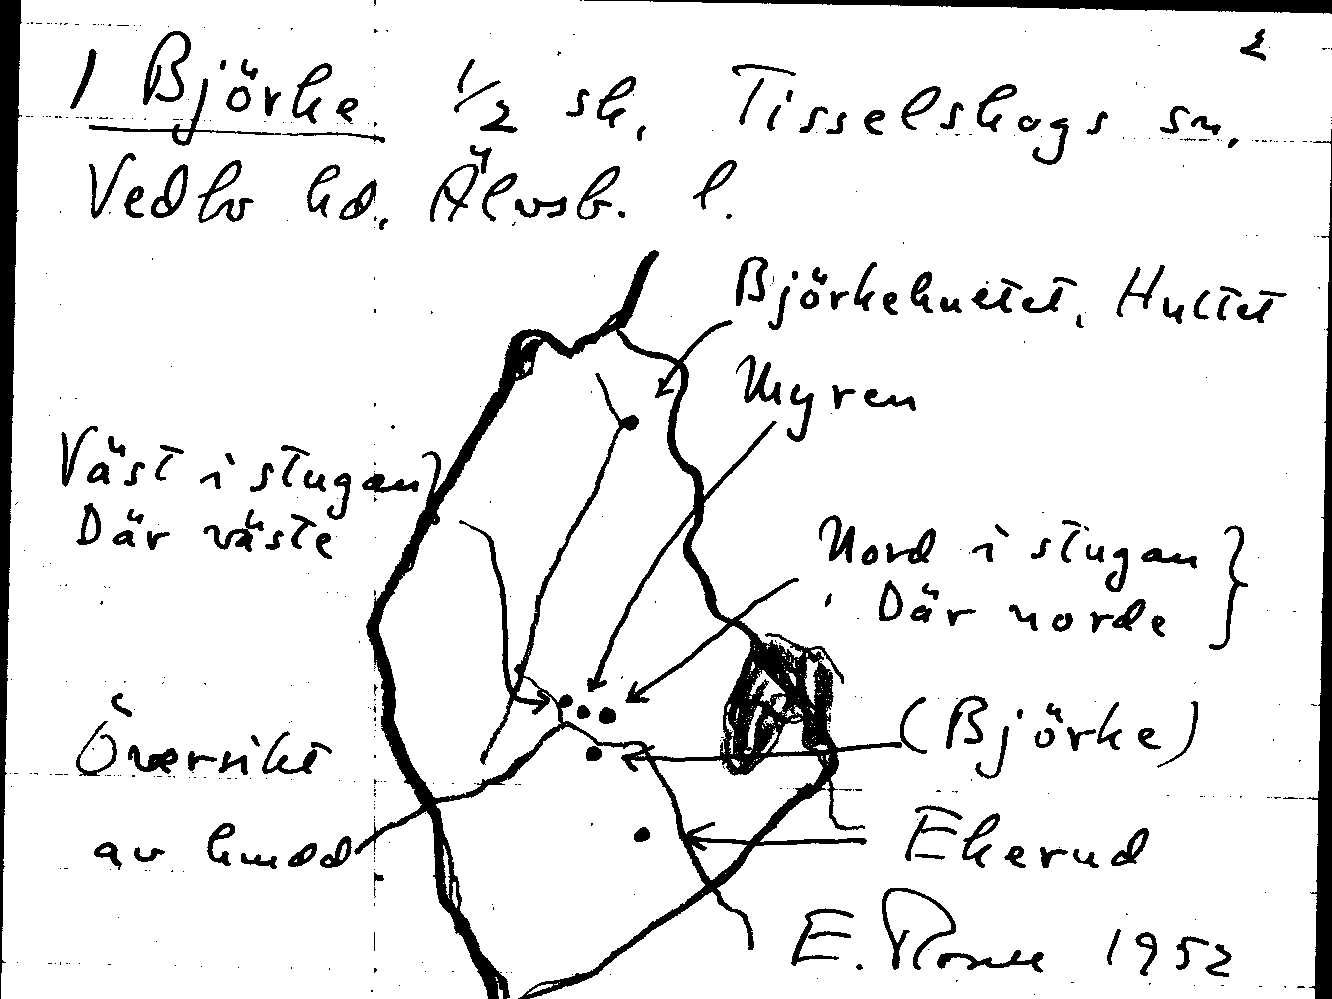 2
1 Björke 1/2 sk, Tisselskogs sn.
Vedbo hd, Älvsb. l.
Björkehultet, Hultet
Myren
Väst i stugan }
Där väste
Nord i stugan }
Där norde
(Björke)
Översikt
av bmdd
Ekerud
E. 1952